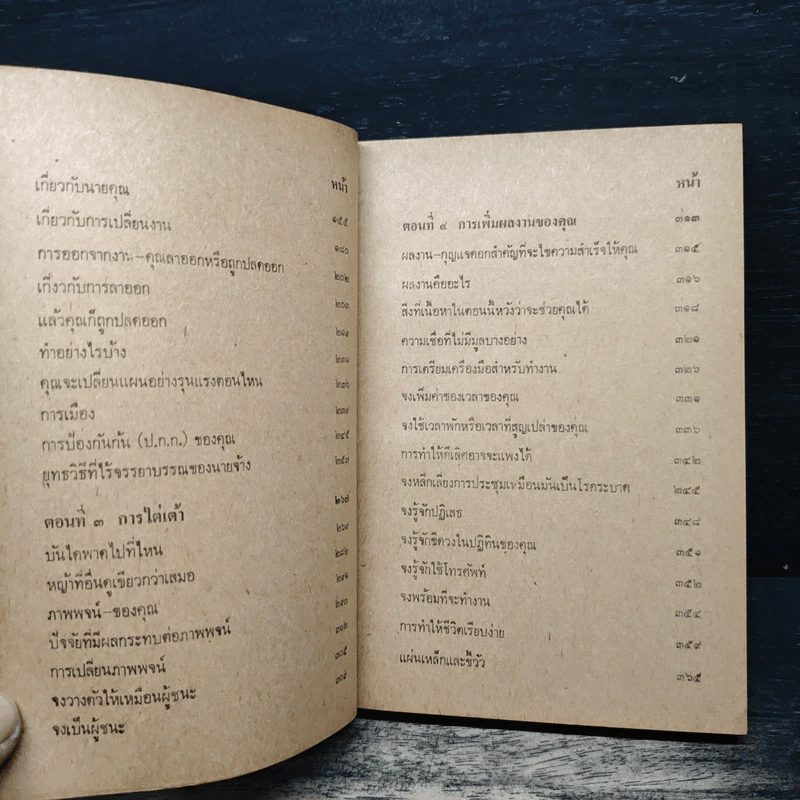 หน้า
เกี่ยวกับนายคุณ ๑๕๕
เกี่ยวกับการเปลี่ยนงาน ๑๘๐
การออกจากงาน-คุณลาออกหรือถูกปลดออก ๒๐๒
เกี่ยวกับการลาออก ๒๐๓
แล้วคุณก็ถูกปลดออก ๒๑๙
ทำอย่างไรบ้าง ๒๓๑
คุณจะเปลี่ยนแผนอย่างรุนแรงตอนไหน ๒๓๖
การเมือง
การป้องกันก้น (ป.ก.ก.) ของคุณ ๒๔๕
ยุทธวิธีที่ไร้จรรยาบรรณของนายจ้าง ๒๕๗
ตอนที่ ๓ การไต่เต้า ๒๖๗
บันไดพาดไปที่ไหน ๒๖๙
หญ้าที่อื่นดูเขียวกว่าเสมอ ๒๘๒
ภาพพจน์-ของคุณ ๒๙๑
ปัจจัยที่มีผลกระทบต่อภาพพจน์ ๒๙๓
การเปลี่ยนภาพพจน์ ๓๐๒
จงวางตัวให้เหมือนผู้ชนะ ๓๐๕
จงเป็นผู้ชนะ ๓๐๙
หน้า
ตอนที่ ๔ การเพิ่มผลงานของคุณ ๓๑๓
ผลงาน-กุญแจดอกสำคัญที่จะไขความสำเร็จให้คุณ ๓๑๕
ผลงานคืออะไร ๓๑๖
สิ่งที่เนื้อหาในตอนนี้หวังว่าจะช่วยคุณได้ ๓๑๘
ความเชื่อที่ไม่มีมูลบางอย่าง ๓๒๑
การเตรียมเครื่องมือสำหรับทำงาน ๓๒๖
จงเพิ่มค่าของเวลาของคุณ ๓๓๑
จงใช้เวลาพักหรือเวลาที่สูญเปล่าของคุณ ๓๓๖
การทำให้ดีเลิศอาจจะแพงได้ ๓๔๒
จงหลีกเลี่ยงการประชุมเหมือนมันเป็นโรคระบาด ๒๔๕
จงรู้จักปฏิเสธ ๓๔๘
จงรู้จักขีดวงในปฏิทินของคุณ ๓๕๑
จงรู้จักใช้โทรศัพท์ ๓๕๒
จงพร้อมที่จะทำงาน ๓๕๔
การทำให้ชีวิตเรียบง่าย ๓๕๙
แผ่นเหล็กและชีวัว ๓๖๕